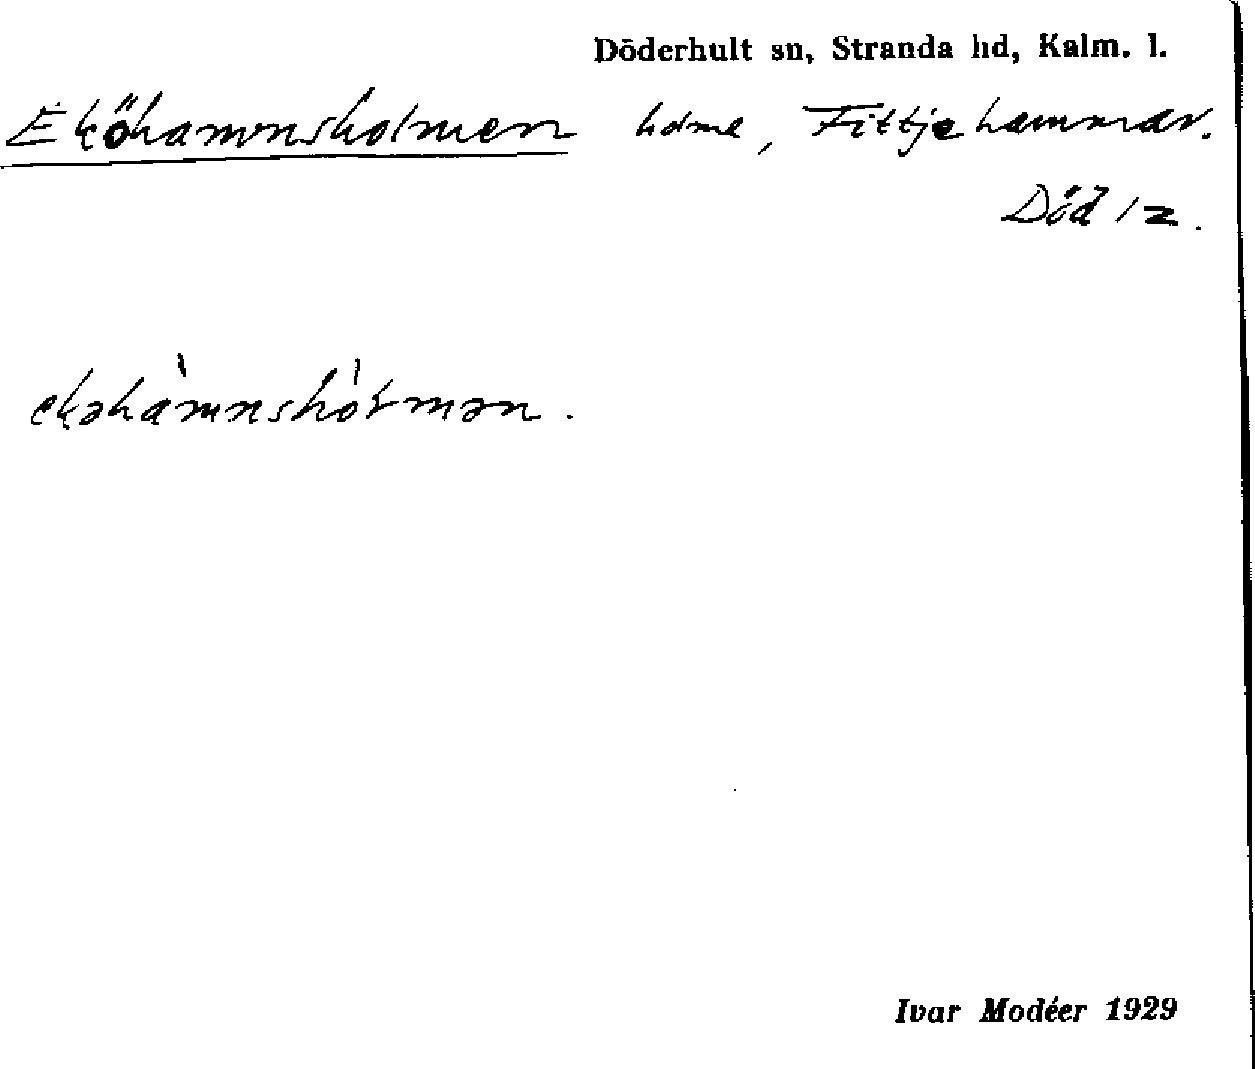 Döderhult sn, Stranda hd, Kalm. l.
Eköhamnsholmen holme, Fittjehammar.
Död 12.
ekəhàmnshòlmən.
Ivar Modéer 1929